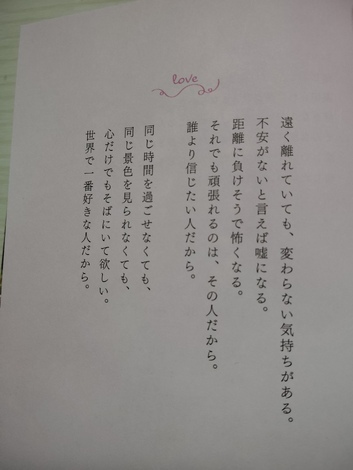 love
遠く離れていても、変わらない気持ちがある。
不安がないと言えば嘘になる。
距離に負けそうで怖くなる。
それでも頑張れるのは、その人だから。
誰より信じたい人だから。
同じ時間を過ごせなくても、
同じ景色を見られなくても、
心だけでもそばにいて欲しい。
世界で一番好きな人だから。